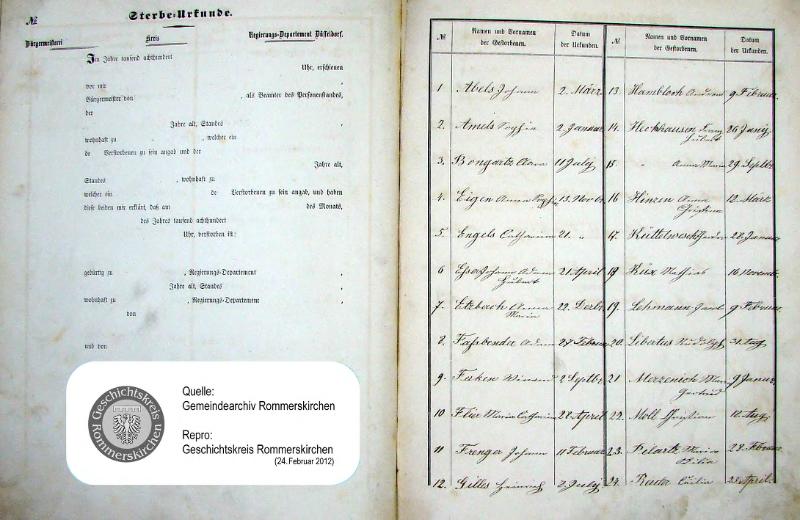 №
Sterbe-Urkunde.
Bürgermeisterei Kreis Regierungs-Departement Düsseldorf.
Im Jahre tausend achthundert
Uhr, erschienen
vor mir ,
Bürgermeister von , als Beamter des Personenstandes,
der
Jahre alt, Standes ,
wohnhaft zu , welcher ein
de Verstorbenen zu sein angab und der
Jahre alt,
Standes , wohnhaft zu
welcher ein de Verstorbenen zu sein angab, und haben
diese beiden mir erklärt, daß am des Monats,
des Jahres tausend achthundert
Uhr, verstorben ist:
gebürtig zu , Regierungs-Departement ,
Jahre alt, Standes ,
wohnhaft zu , Regierungs-Departement ,
von
und von
GESCHICHTSKREIS ROMMERSKIRCHEN
Quelle:
Gemeindearchiv Rommerskirchen
Repro:
Geschichtskreis Rommerskirchen
(24.Februar 2012)
№ Namen und Vornamen der Gestorbenen. Datum der Urkunden.
1 Abels Johann 2. März
2. Amels Sophia 2 Januar
3. Bongartz Clara 11 July
4. Eigen Anna 13. Novbr.
5 Engels Catharina 21. "
6 Esser Johann Adam Hubert 21 April
7. Etzbach Anna Maria 22. Decbr.
8. Faßbender Adam 27 Februar
9. Feiken Winand 2 Septbr.
10 Flür Maria Catharina 28 April
11 Frenger Johann 11 Februar
12. Gilles Heinrich 2 July
№ Namen und Vornamen der Gestorbenen. Datum der Urkunden.
13. Hambloch Andreas 9 Februar
14. Heckhausen Hubert 26 Juny
15 " Anna Maria 29. Septbr.
16 Hinzen Anna Christina 12. März
17. Küttelwesch 28 Januar
18 Küx Mathias 16 Novemb.
19. Lehmann Jacob 9 Februar
20. Libertus Rudolph 31. Aug.
21 Merzenich Maria Gertrud 9 Januar
22. Moll Christian 12. Aug.
23. Pilartz Maria Cäcilia 28. Februar
24. Rauta Cäcilia 28 April.